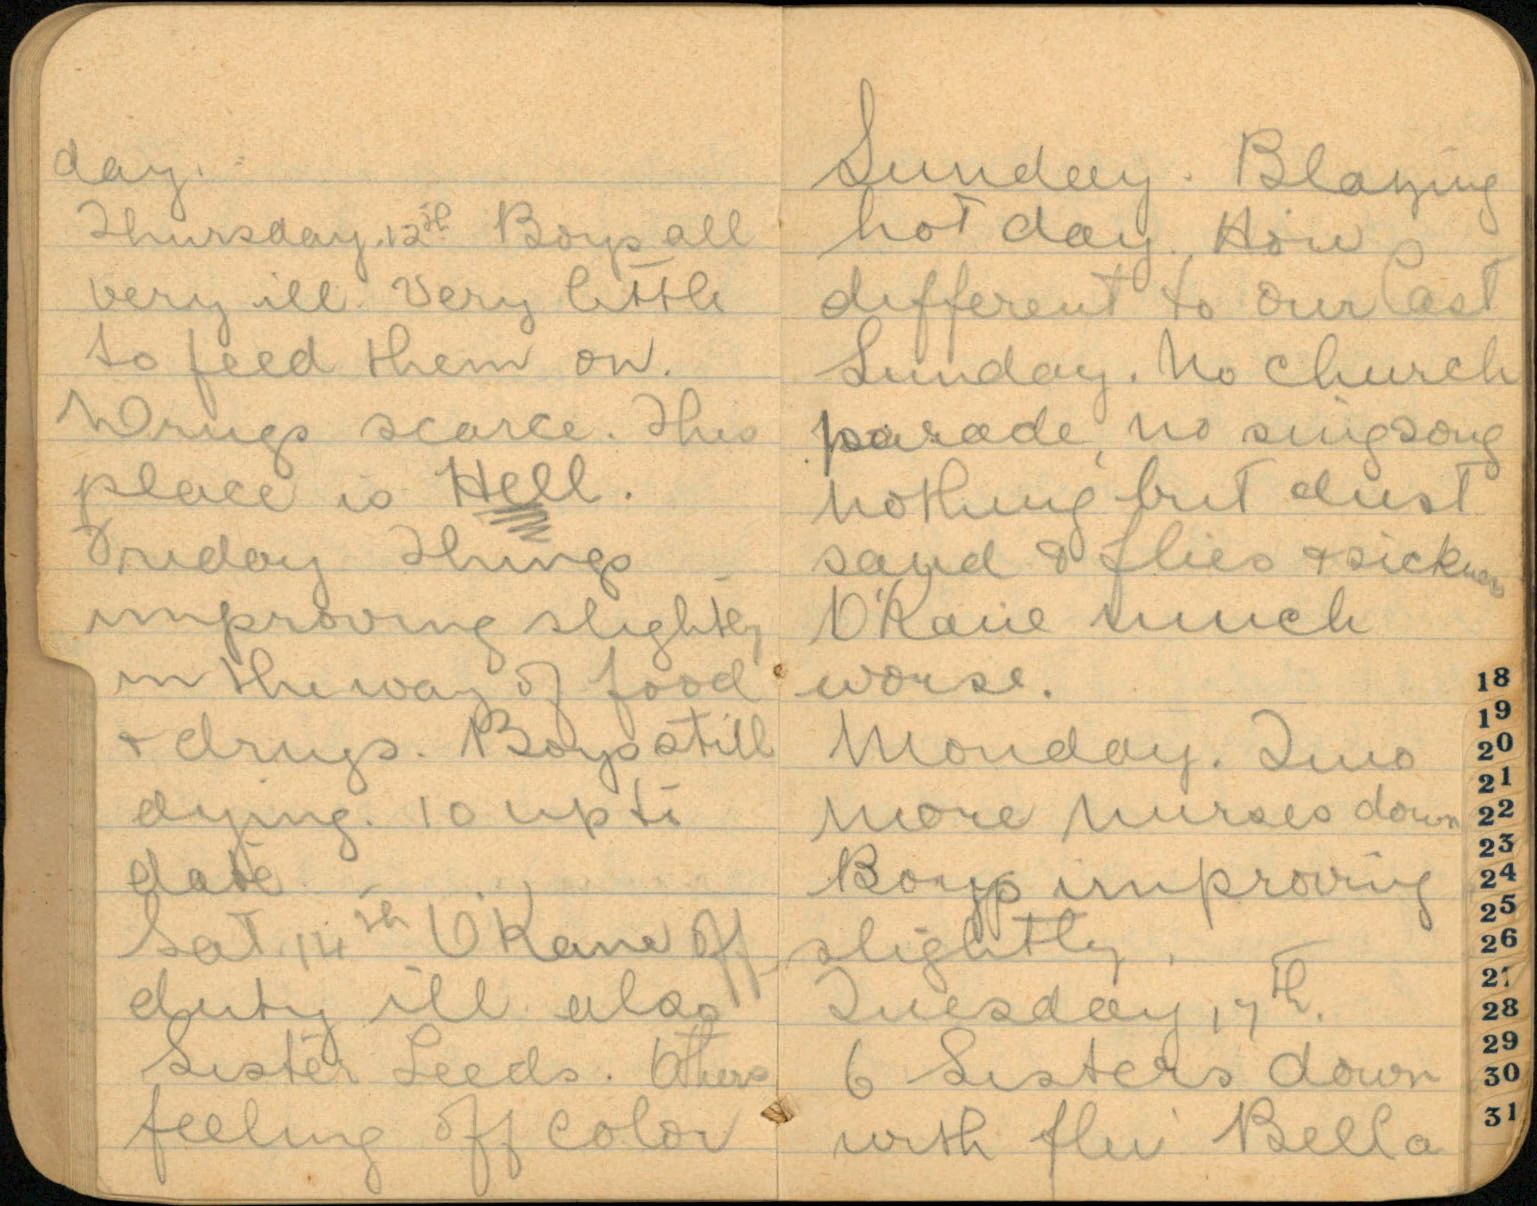 day.
Thursday. 12th Boys all
very ill. Very little
to feed them on.
Drugs scarce. This
place is Hell.
Friday Things
improving slightly
in the way of food
& drugs. Boys still
dying. 10 up to
date
Sat. 14th O'Kane off
duty ill also
Sister Leeds. Others
feeling off color
Sunday. Blazing
hot day. How
different to our last
Sunday. No church
parade, no singsong
nothing but dust
sand & flies & sickness
O'Kane much
worse.
Monday. Two
more nurses down
Boys improving
slightly.
Tuesday 17th.
6 Sisters down
with flu Bella
18
19
20
21
22
23
24
25
26
27
28
29
30
31